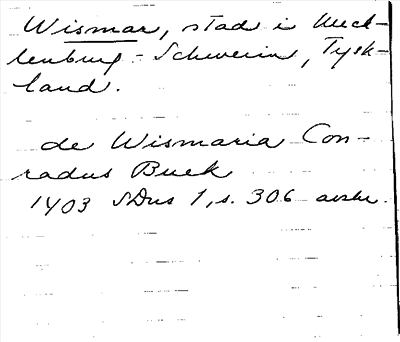 Wismar, stad i Meck-
lenburg-Schwerin, Tysk-
land.
de Wismaria Con-
radus Buck
1403 SDns 1, s. 306 avskr.